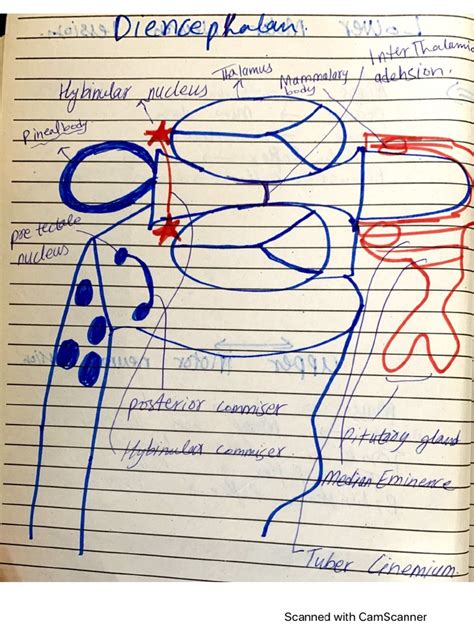 Diencephalan.
Inter Thalamic
adehsion.
Thalamus
Mammalary
body
Hybinular nucleus
Pinealbody
pre tectale
nucleus
posterior commiser
Hybinular commiser.
Pitutary gland
Median Eminence
Tuber Cinemium.
upper motor
Scanned with CamScanner